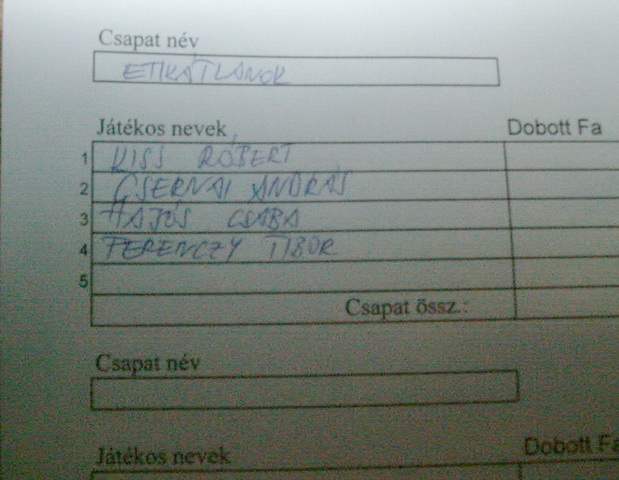 Csapat név
ETIKÁTLANOK
Játékos nevek Dobott Fa
1 KISS RÓBERT
2 CSERNAI ANDRÁS
3 HAJÓS CSABA
4 FERENCZY TIBOR
5
Csapat össz.:
Csapat név
Játékos nevek Dobott Fa